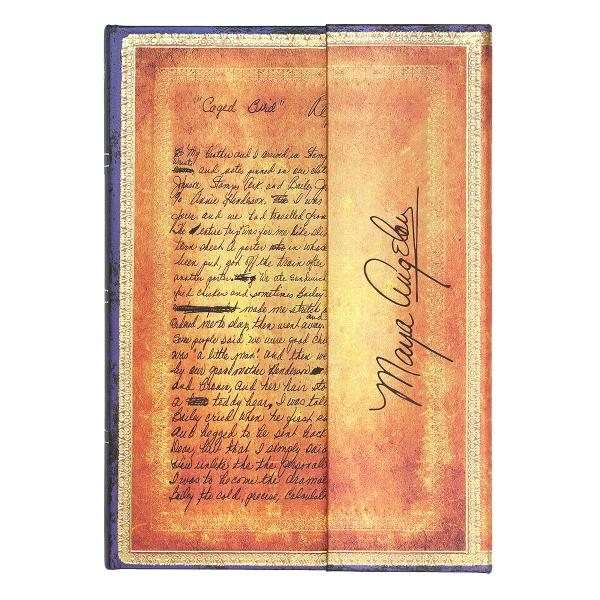 "Caged Bird"
My brother and I arrived in Stamp
and notes pinned on our clot
Johnson, Stamps Ark. and Bailey Jo
Annie Henderson. I was
and we had travelled from
entire trip was for me like
sheet A porter in whose
been put, got off the train after
another porter. We ate sandwich
fried chicken and sometimes Bailey
made me stretch and
me to sleep, then went away.
Some people said we were good
was "a little man" and then we
by our grandmother Henderson
and Brown, and her hair sto
a teddy bear, I was
Bailey cried when he first
and begged to be sent back
dear, but that I simply said
How unlike the the personali
I was to become the drama
Bailey the cold, precise, calculat
Maya Angelou